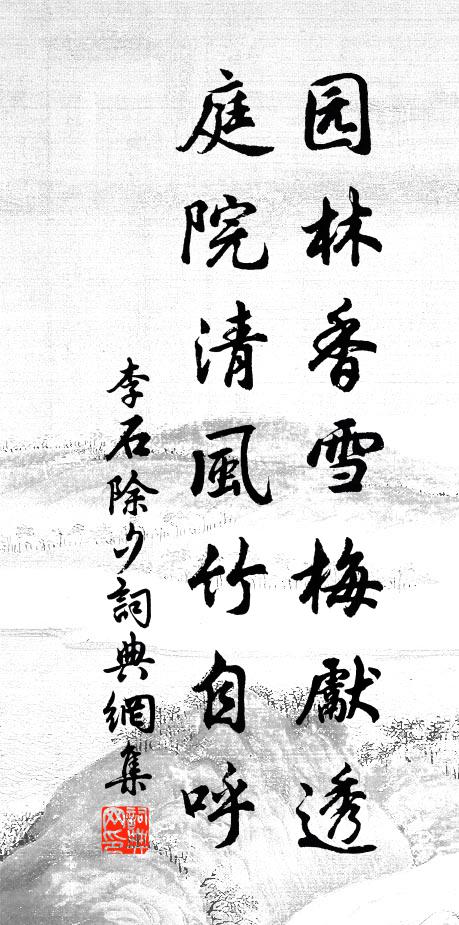 园林香雪梅献透
庭院清風竹自呼
李石除夕詞典網集